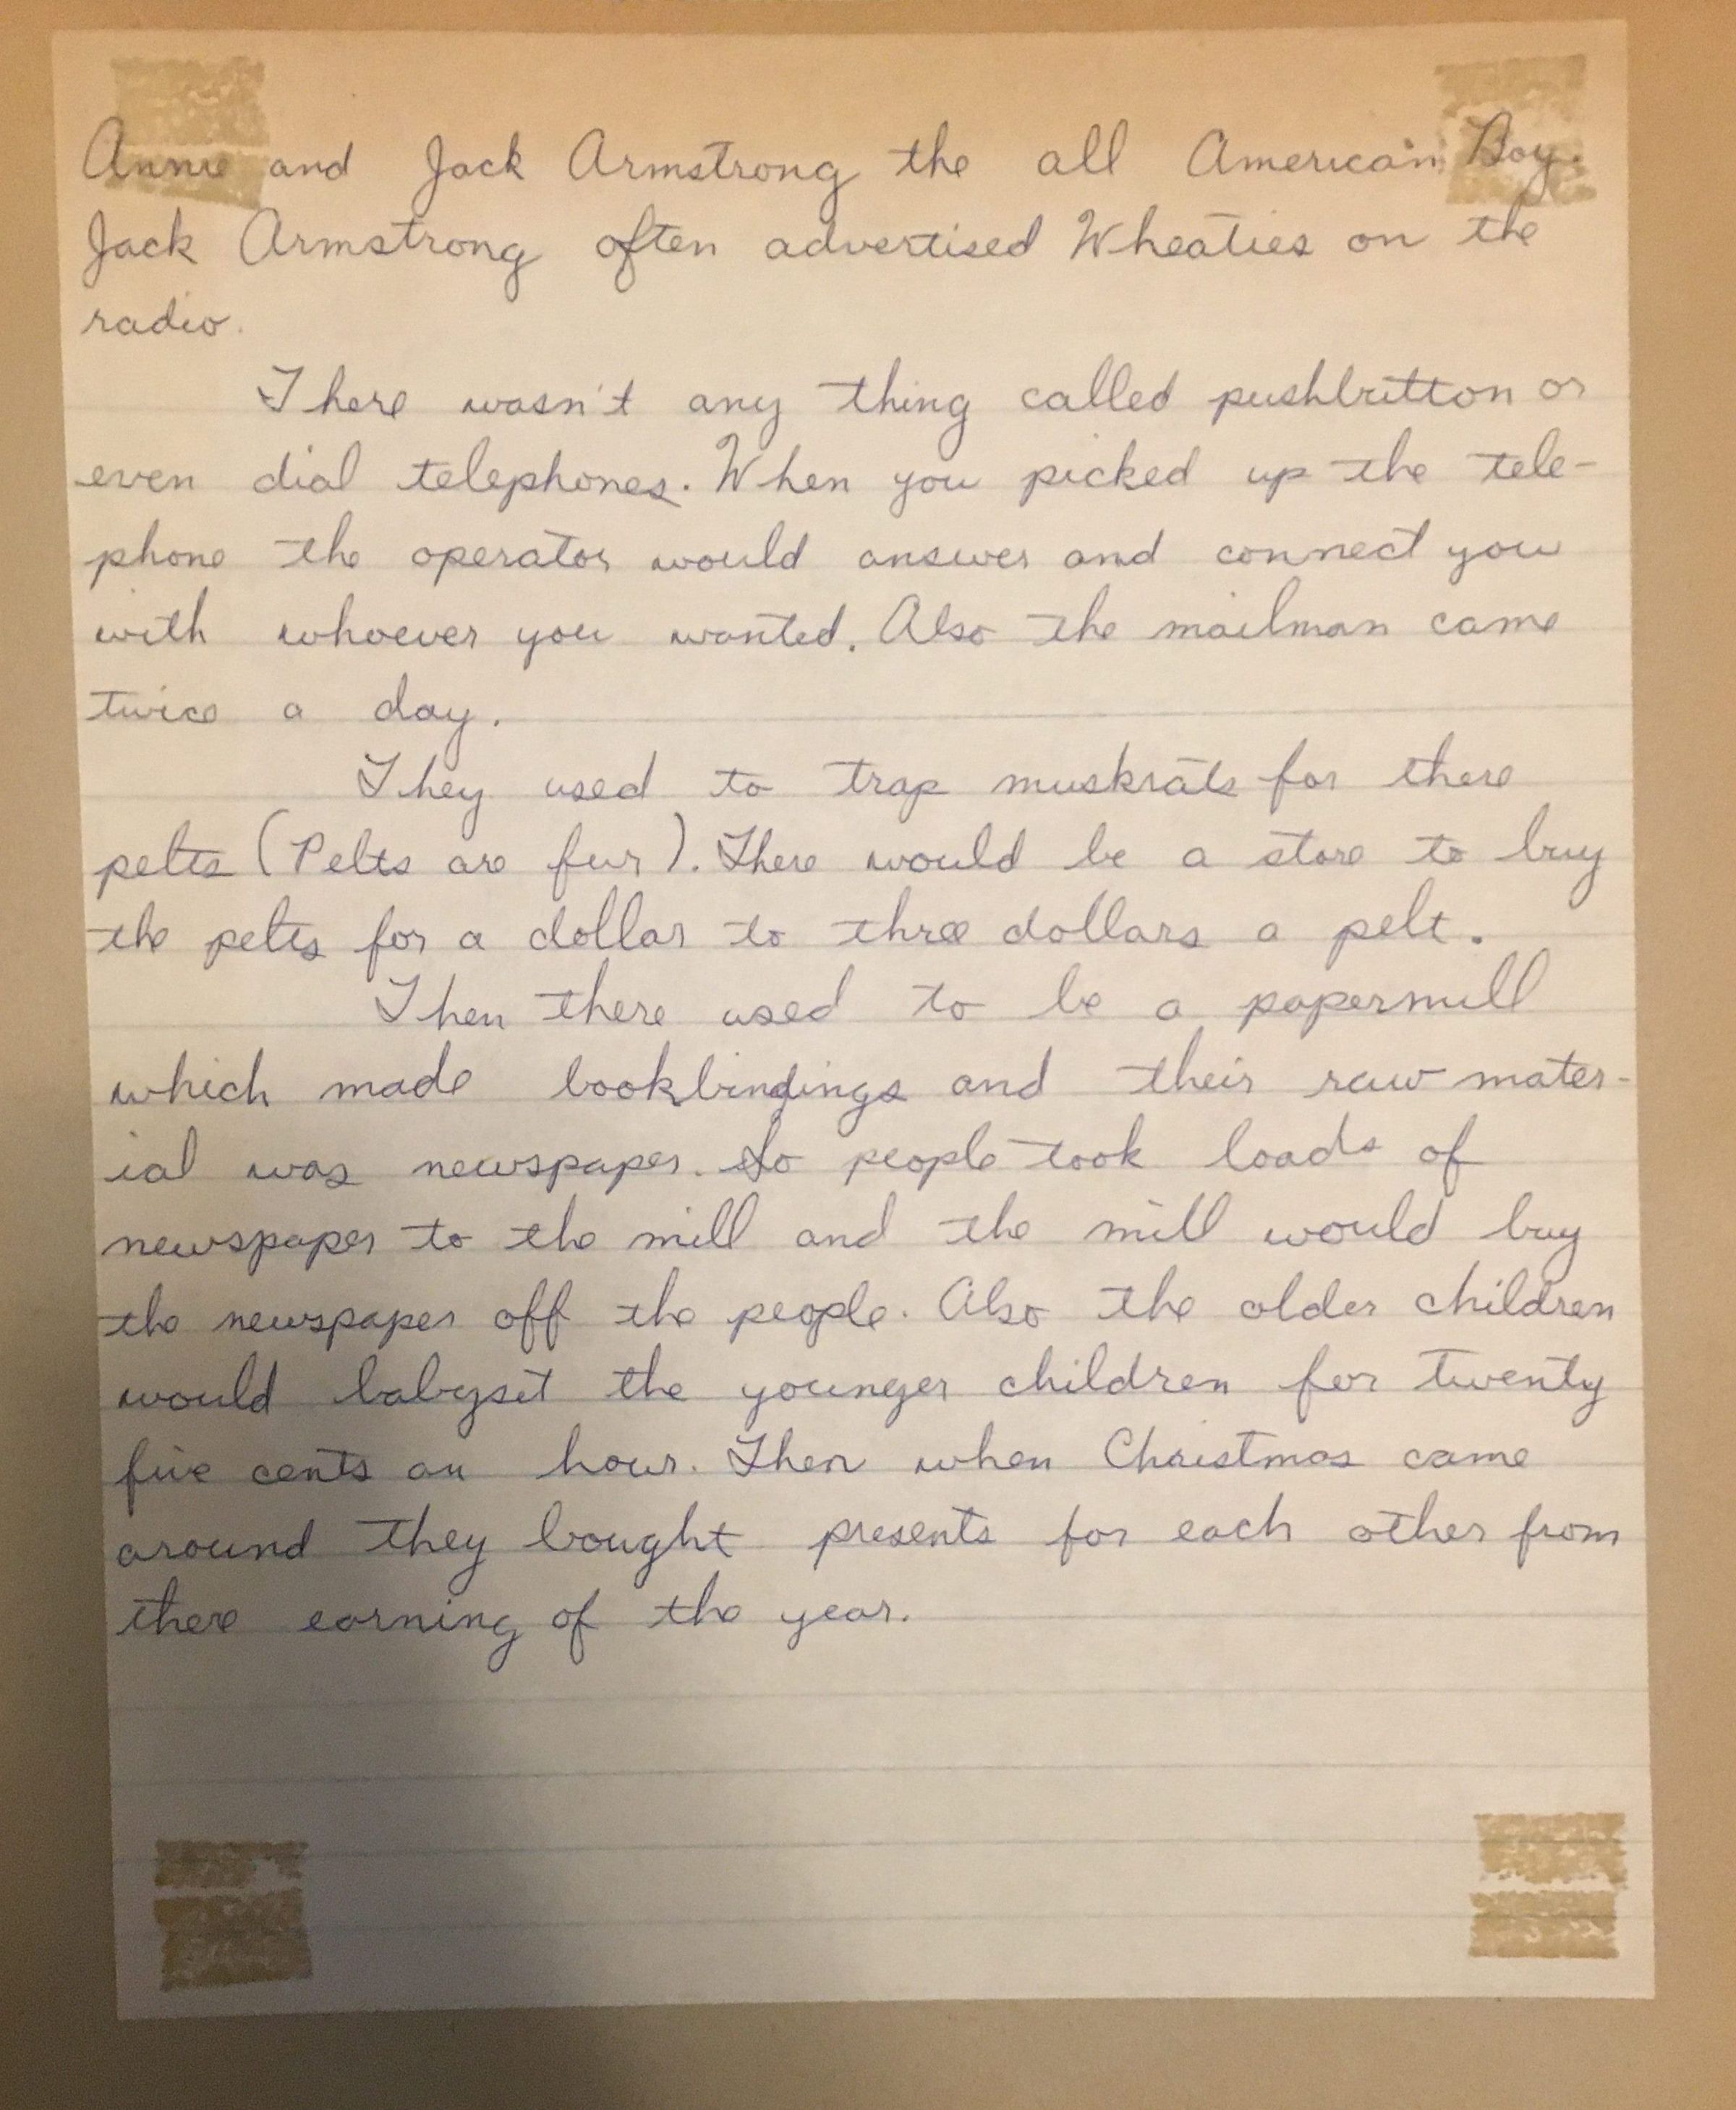 Annie and Jack Armstrong the all American Boy.
Jack Armstrong often advertised Wheaties on the
radio.
There wasn't any thing called pushbutton or
even dial telephones. When you picked up the tele-
phone the operator would answer and connect you
with whoever you wanted. Also the mailman came
twice a day.
They used to trap muskrats for there
pelts (Pelts are fur). There would be a store to buy
the pelts for a dollar to three dollars a pelt.
Then there used to be a papermill
which made bookbindings and their raw mater-
ial was newspaper. So people took loads of
newspaper to the mill and the mill would buy
the newspaper off the people. Also the older children
would babysit the younger children for twenty
five cents an hour. Then when Christmas came
around they bought presents for each other from
there earning of the year.